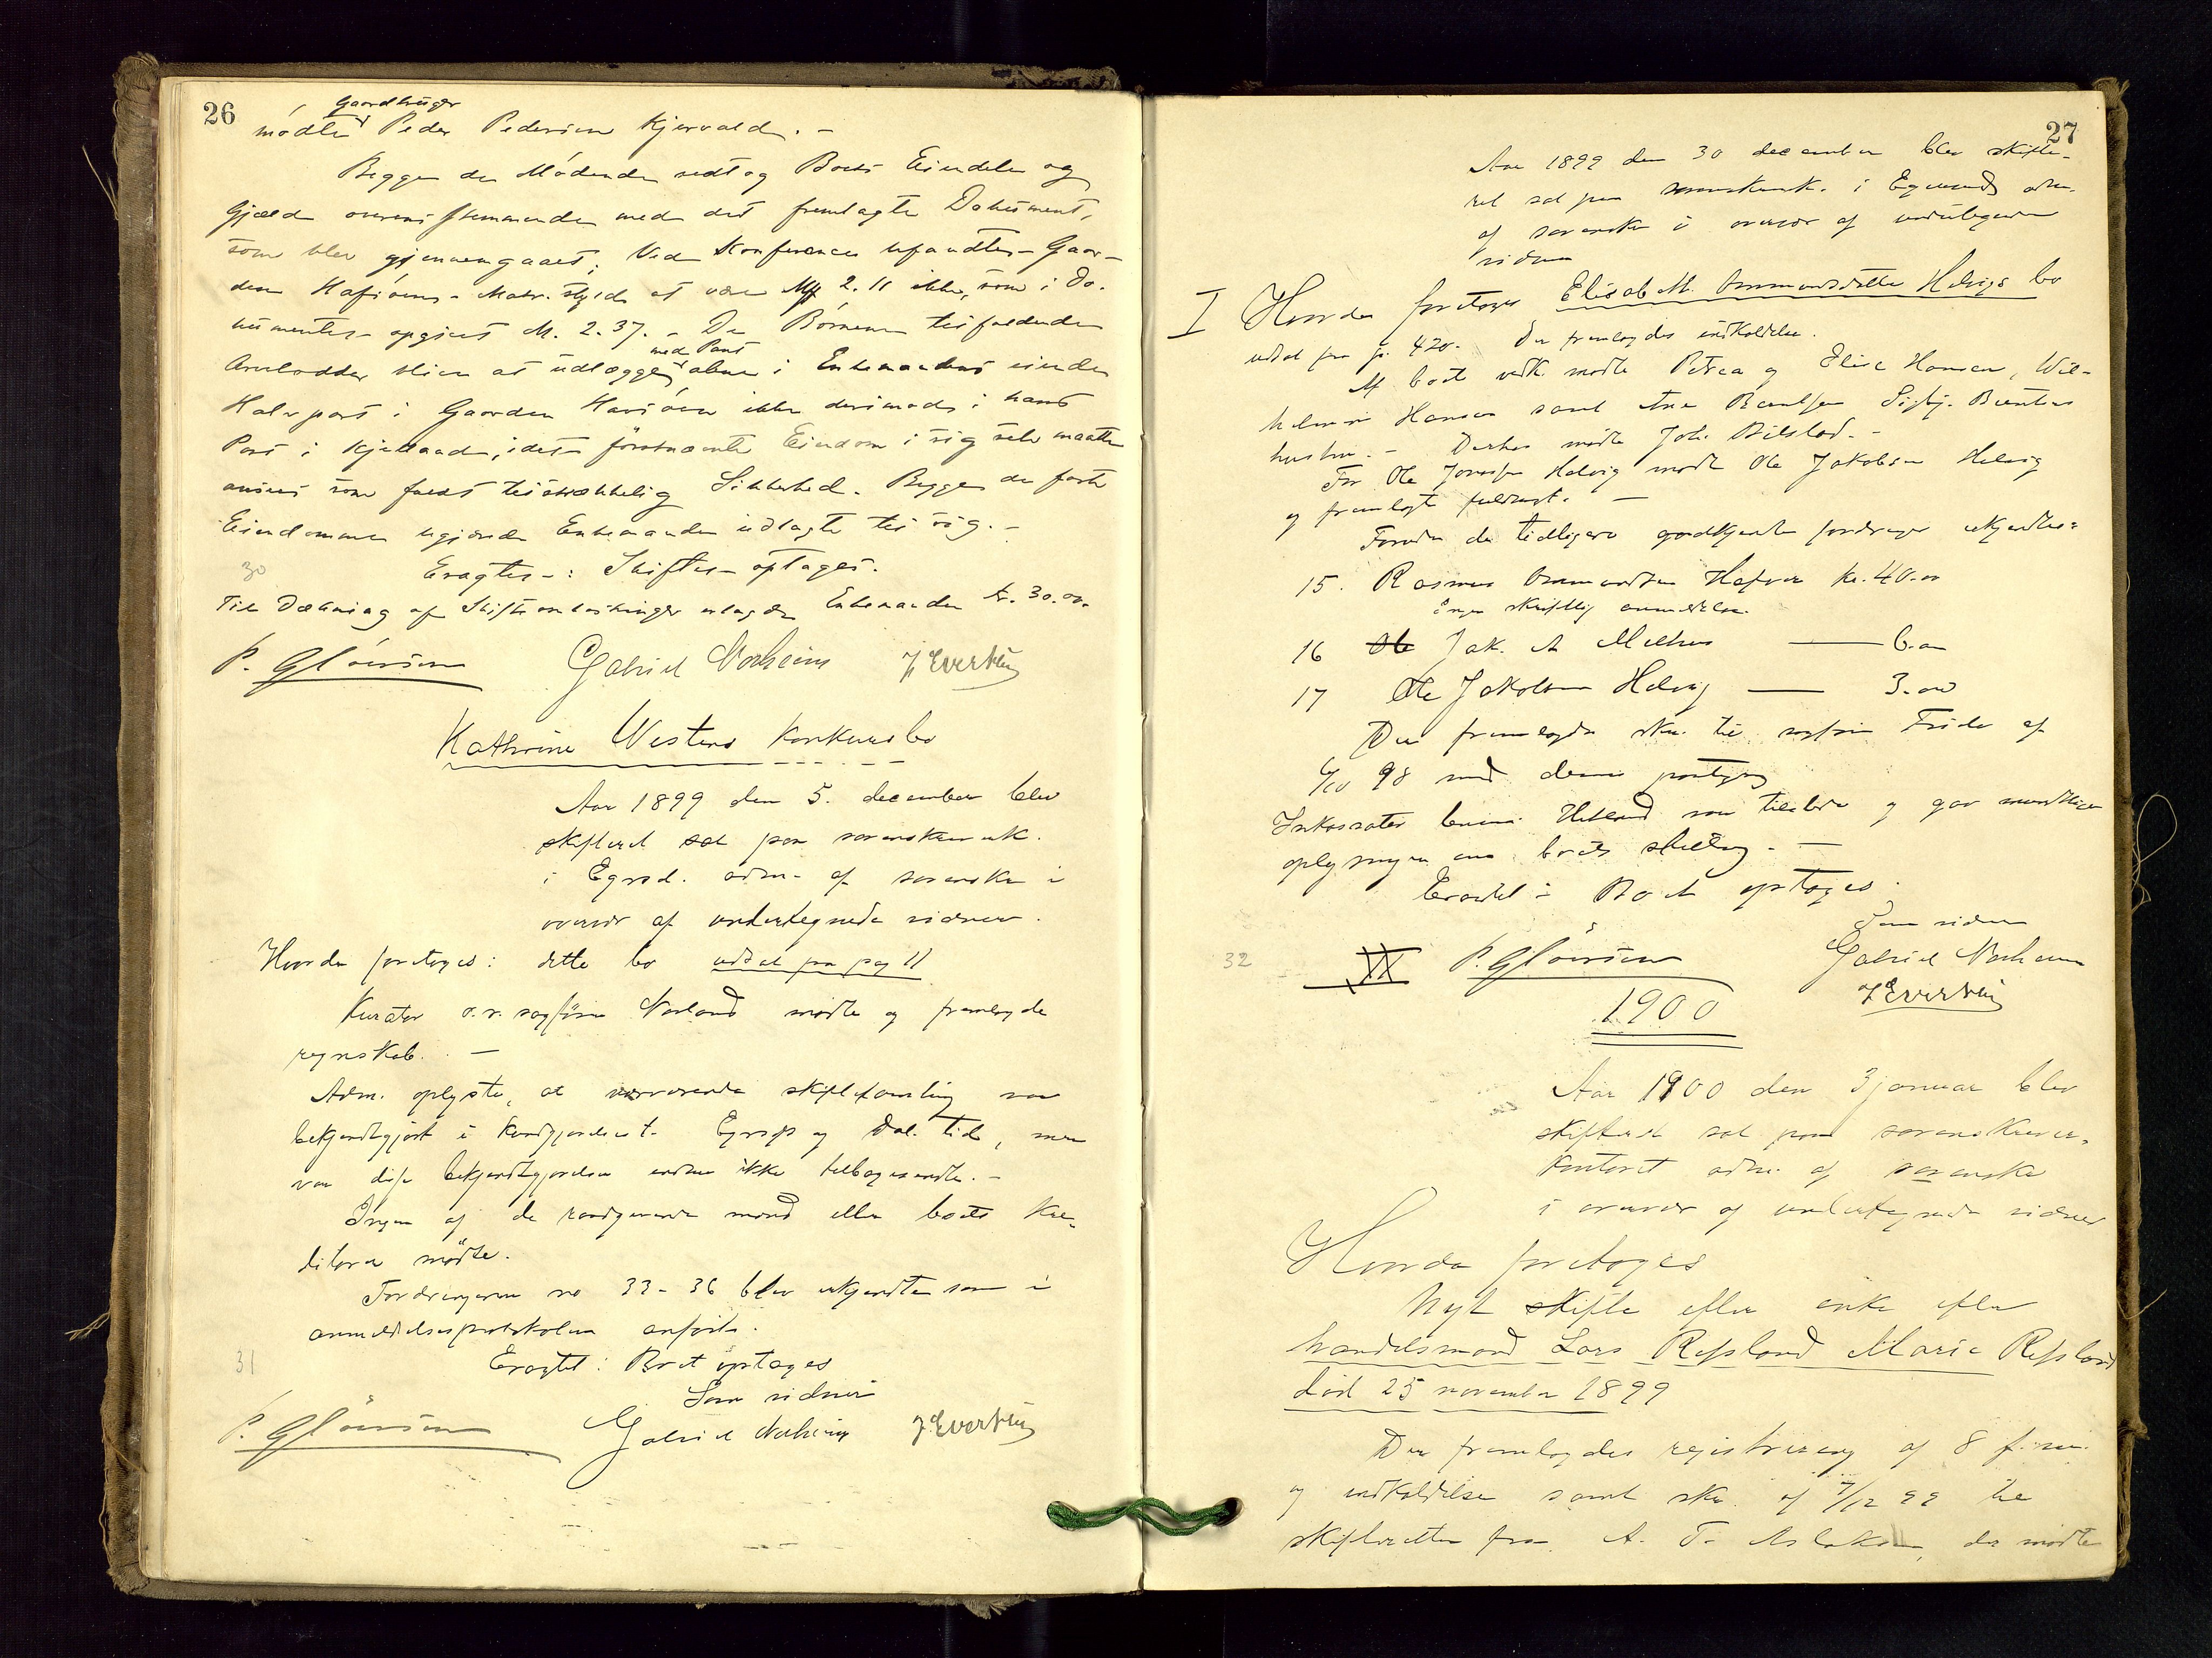 26
Gaardbruger
mødte Peder Pedersen Kjervald. –
Begge de Mødende vedtog Boets Eiendele og
Gjæld overensstemmende med det fremlagte Dokument,
som blev gjennemgaaet. Ved Konference befandtes Gaar-
den Hafsøens Matr. skyld at være Mk 2.11 ikke, som i Do-
kumentet opgivet M. 2.37. – De Børnene tilfaldende
med Pant
Arvelodder bliver at udlægges alene i Enkemandens eiende
Halvpart i Gaarden Havsøen ikke derimod i hans
Part i Kjelland, idet førstnævnte Eiendom i sig selv maatte
ansees som fuldt tilstrækkelig Sikkerhed. Begge de faste
Eiendomme begjærede Enkemanden udlagte til sig. –
30
Eragtes: Skiftet optages.
Til Dækning af Skifteomkostninger erlagde Enkemanden kr. 30.00.
Gabriel Norheim
Kathrine Westens konkursbo
Aar 1899 den 5. december blev
skifteret sat paa sorenskriverk.
i Egrsd. adm. af sorenskr. i
overvær af undertegnede vidner.
Hvorda foretoges: dette bo udsat fra pag 11
Kurator o.r. sagfører Norland mødte og fremlagde
regnskab. –
Adm. oplyste, at nærværende skiftesamling var
bekjendtgjort i Kundgjørelsest. Egrsp og Dal. tid, men
var disse bekjendtgjørelser endnu ikke tilbagesendte. –
Ingen af de raadgivende mænd eller boets kre-
ditorer mødte.
Fordringerne no 33-36 blev erkjendte som i
anmeldelsesprotokollen anført.
31
Eragtet: Boet optages
Som vidner
Gabriel Norheim
27
Aar 1899 den 30 december blev skifte-
ret sat paa sorenskrk. i Egersund adm.
af sorenskr i overvær af undertegnede
vidner
I Hvorda foretoges Elisabeth Ommundsdatter Helvigs bo
udsat fra p. 420. Der fremlagdes indkaldelse.
Af boets vedk. mødte Petrea og Elise Hansen, Wil-
helmine Hansen samt Ane Berntsen Sigbj. Berntsens
hustru. – Derhos mødte Joh. Bilstad. –
For Ole Jonassen Helvig mødte Ole Jakobsen Helvig
og fremlagte fuldmagt. –
Foruden de tidligere godkjendte fordringer erkjendtes:
15. Rasmus Ommundsen Hafsøe kr. 40.00
Ingen skriftlig anmeldelse.
16 Ole Jak. A Melhus — 6.00
17 Ole Jakobsen Helvig — 3.00
Der fremlagdes skr. til sagfører Feide af
6/10 98 med dennes paategning
Inkassator Hetland var tilstede og gav mundtlige
oplysninger om boets stilling. –
Eragtet: Boet optages.
Som vidner
32
Gabriel Norheim
1900
Aar 1900 den 3 januar blev
skifteret sat paa sorenskriver-
kontoret adm. af sorenskr
i overvær af undertegnede vidner
Hvorda foretoges
Nyt skifte efter enke efter
handelsmand Lars Refsland Marie Refsland
død 25 november 1899
Der fremlagdes registrering af 8 f. m.
og indkaldelse samt skr. af 7/12 99 til
skifteretten fra A. T. Aslaksen, der mødte